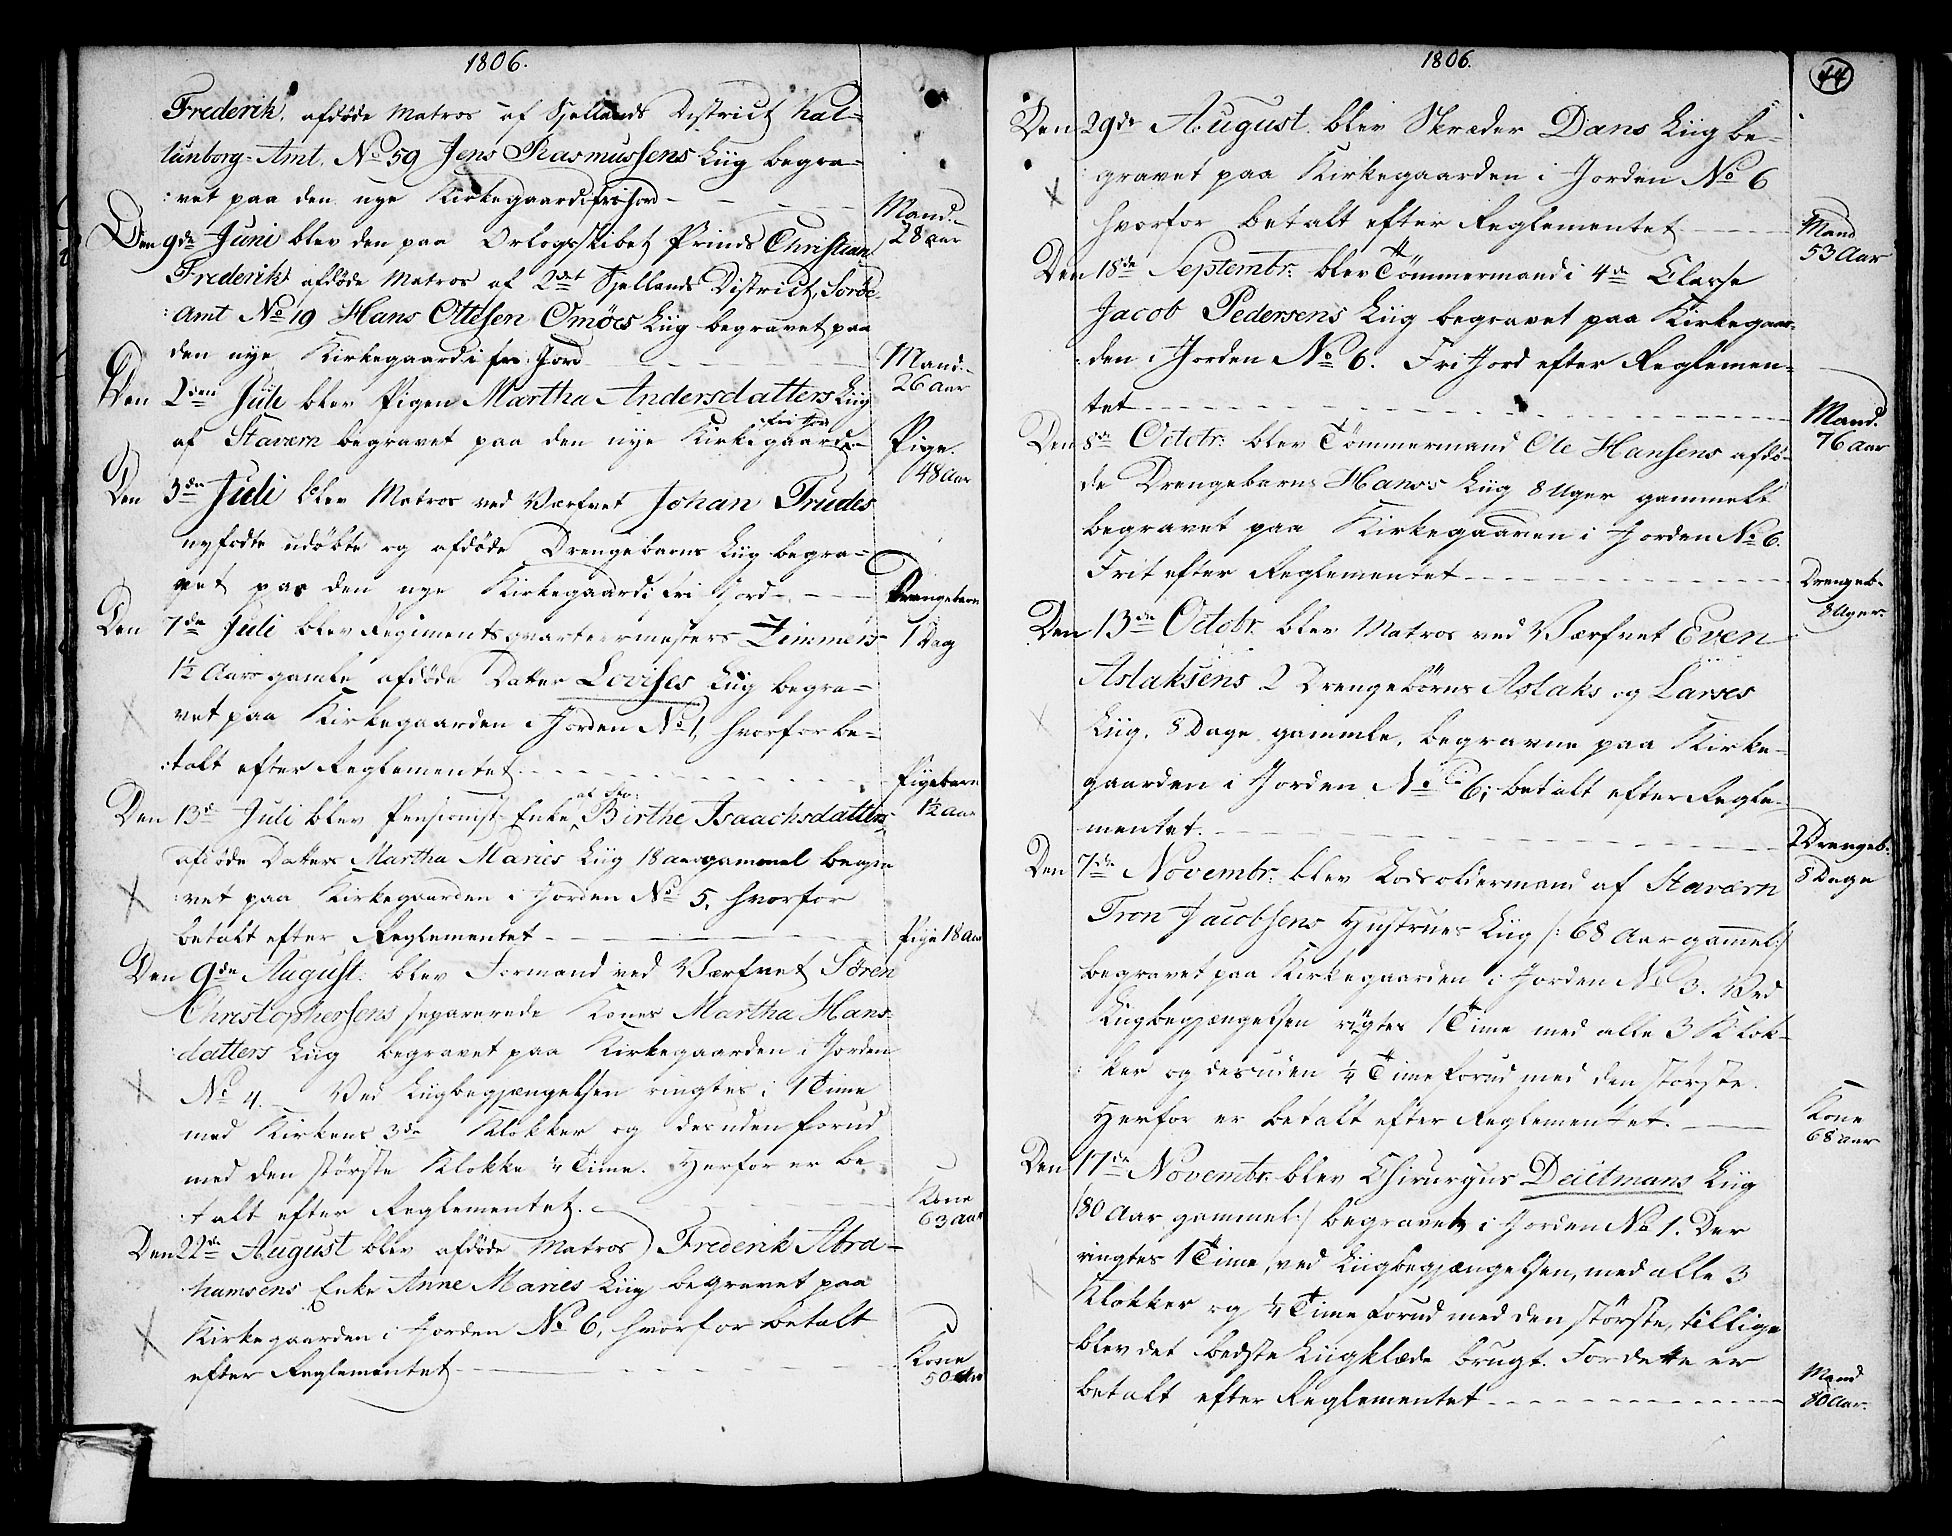 1806.
Frederik, afdøde Matros af Sjellands District Kal-
lunborg-Amt, No 59 Jens Rasmussens Liig begra-
:vet paa den nye Kirkegaard i fri Jord
Mand.
28 aar
Den 9de Juni blev den paa Orlogsskibet Prinds Christian
Frederik afdøde Matros af 2det Sjellands District, Soröe
:Amt No 19 Hans Ottesen Omöes Liig begravet paa
den nye Kirkegaard i frie Jord
Mand.
26 aar
Den 2den Juli blev Pigen Martha Andersdatters Liig
af Stavern begravet paa den nye Kirkegaard i fri Jord
Pige.
48 aar
Den 3den Juli blev Matros ved Værfvet Johan Trudes
nyfödte udöbte og afdöde Drengebarns Liig begra-
vet paa den nye Kirkegaard i fri Jord
Drengebarn
1 Dag
Den 7de Juli blev Regimentsqvarteermesters Zimmers
1½ Aars gamle afdöde Datter Lovises Liig begra-
vet paa Kirkegaarden i Jorden No 1, hvorfor be-
:talt efter Reglementet
Pigebarn
1½ aar
Den 13de Juli blev Pensionist Enke af Sta: Birthe Isaachsdatters
afdöde Datters Martha Maries Liig 18 aar gammel begra
:vet paa Kirkegaarden i Jorden No 5, hvorfor
betalt efter Reglementet
Pige 18 aar
Den 9de August: blev Formand ved Værfvet Sören
Christophersens separerede Kones Martha Hans-
:datters Liig begravet paa Kirkegaarden i Jorden
No 4. Ved Liigbegjængelsen ringtes i 1 Time
med Kirkens 3de Klokker og desuden forud
med den störste Klokke ¼ Time. Herfor er be
:talt efter Reglementet.
Kone
63 aar
Den 22de August blev afdöde Matros Frederik Abra-
hamsens Enke Anne Maries Liig begravet paa
Kirkegaarden i Jorden No 6, hvorfor betalt
efter Reglementet
Kone
50 aar
1806.
44
Den 29de August. blev Skræder Dans Liig be-
gravet paa Kirkegaarden i Jorden No 6
hvorfor betalt efter Reglementet
Mand
53 Aar
Den 18de Septembr: blev Tömmermand i 4de Classe
Jacob Pedersens Liig begravet paa Kirkegaar-
:den i Jorden No 6. Fri Jord efter Reglemen-
tet
Mand.
76 aar
Den 8de Octobr: blev Tömmermand Ole Hansens afdö-
de Drengebarns Hanses Liig 8 Uger gammelt
begravet paa Kirkegaaren i Jorden No 6.
Frit efter Reglementet
Drengeb.
8 Uger.
Den 13de Octobr. blev Matros ved Værfvet Even
Aslaksens 2 Drengebörns Aslaks og Larses
Liig, 8 Dage gammle, begravne paa Kirke-
gaarden i Jorden No 6; betalt efter Regle-
mentet.
2 Drengeb.
8 Dage
Den 7de Novembr: blev Lodsoldermand af Staværn
Tron Jacobsens Hustrues Liig /: 68 Aar gammel :/
begravet paa Kirkegaarden i Jorden No 3. Ved
Liigbegjængelsen ringtes 1 Time med alle 3 Klok-
:ker og desuden ¼ Time forud med den störste.
Herfor er betalt efter Reglementet.
Kone
68 aar
Den 17de Novembr: blev Chirurgus Deictmans Liig
/80 Aar gammel:/ begravet i Jorden No 1. Der
ringtes 1 Time, ved Liigbegjængelsen, med alle 3
Klokker og ¼ Time forud med den störste, tillige
blev det bedste Liigklæde brugt. For dette er
betalt efter Reglementet
Mand
80 Aar.